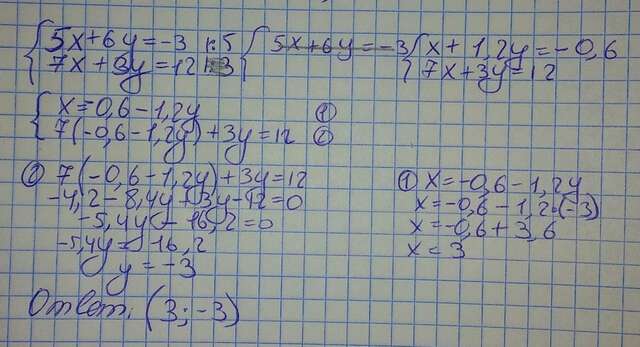 {5x+6y=-3 |:5 {5x+6y=-3 {x+1,2y=-0,6
{7x+3y=12 {7x+3y=12
{x=0,6-1,2y ①
{7(-0,6-1,2y)+3y=12 ②
② 7(-0,6-1,2y)+3y=12
-4,2-8,4y+3y-12=0
-5,4y-16,2=0
-5,4y=16,2
y=-3
① x=-0,6-1,2y
x=-0,6-1,2·(-3)
x=-0,6+3,6
x=3
Ответ: (3;-3)